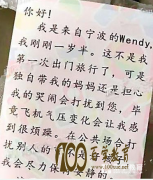 你好!
我是来自宁波的Wendy,
我刚刚一岁半。这不是我
第一次出门旅行了,可是
独自带我的妈妈还是担心
我的哭闹会打扰到您,毕
竟飞机气压变化会让我感
到很烦躁。在公共场合打
扰别人的
不好
我会尽力保
安静的。